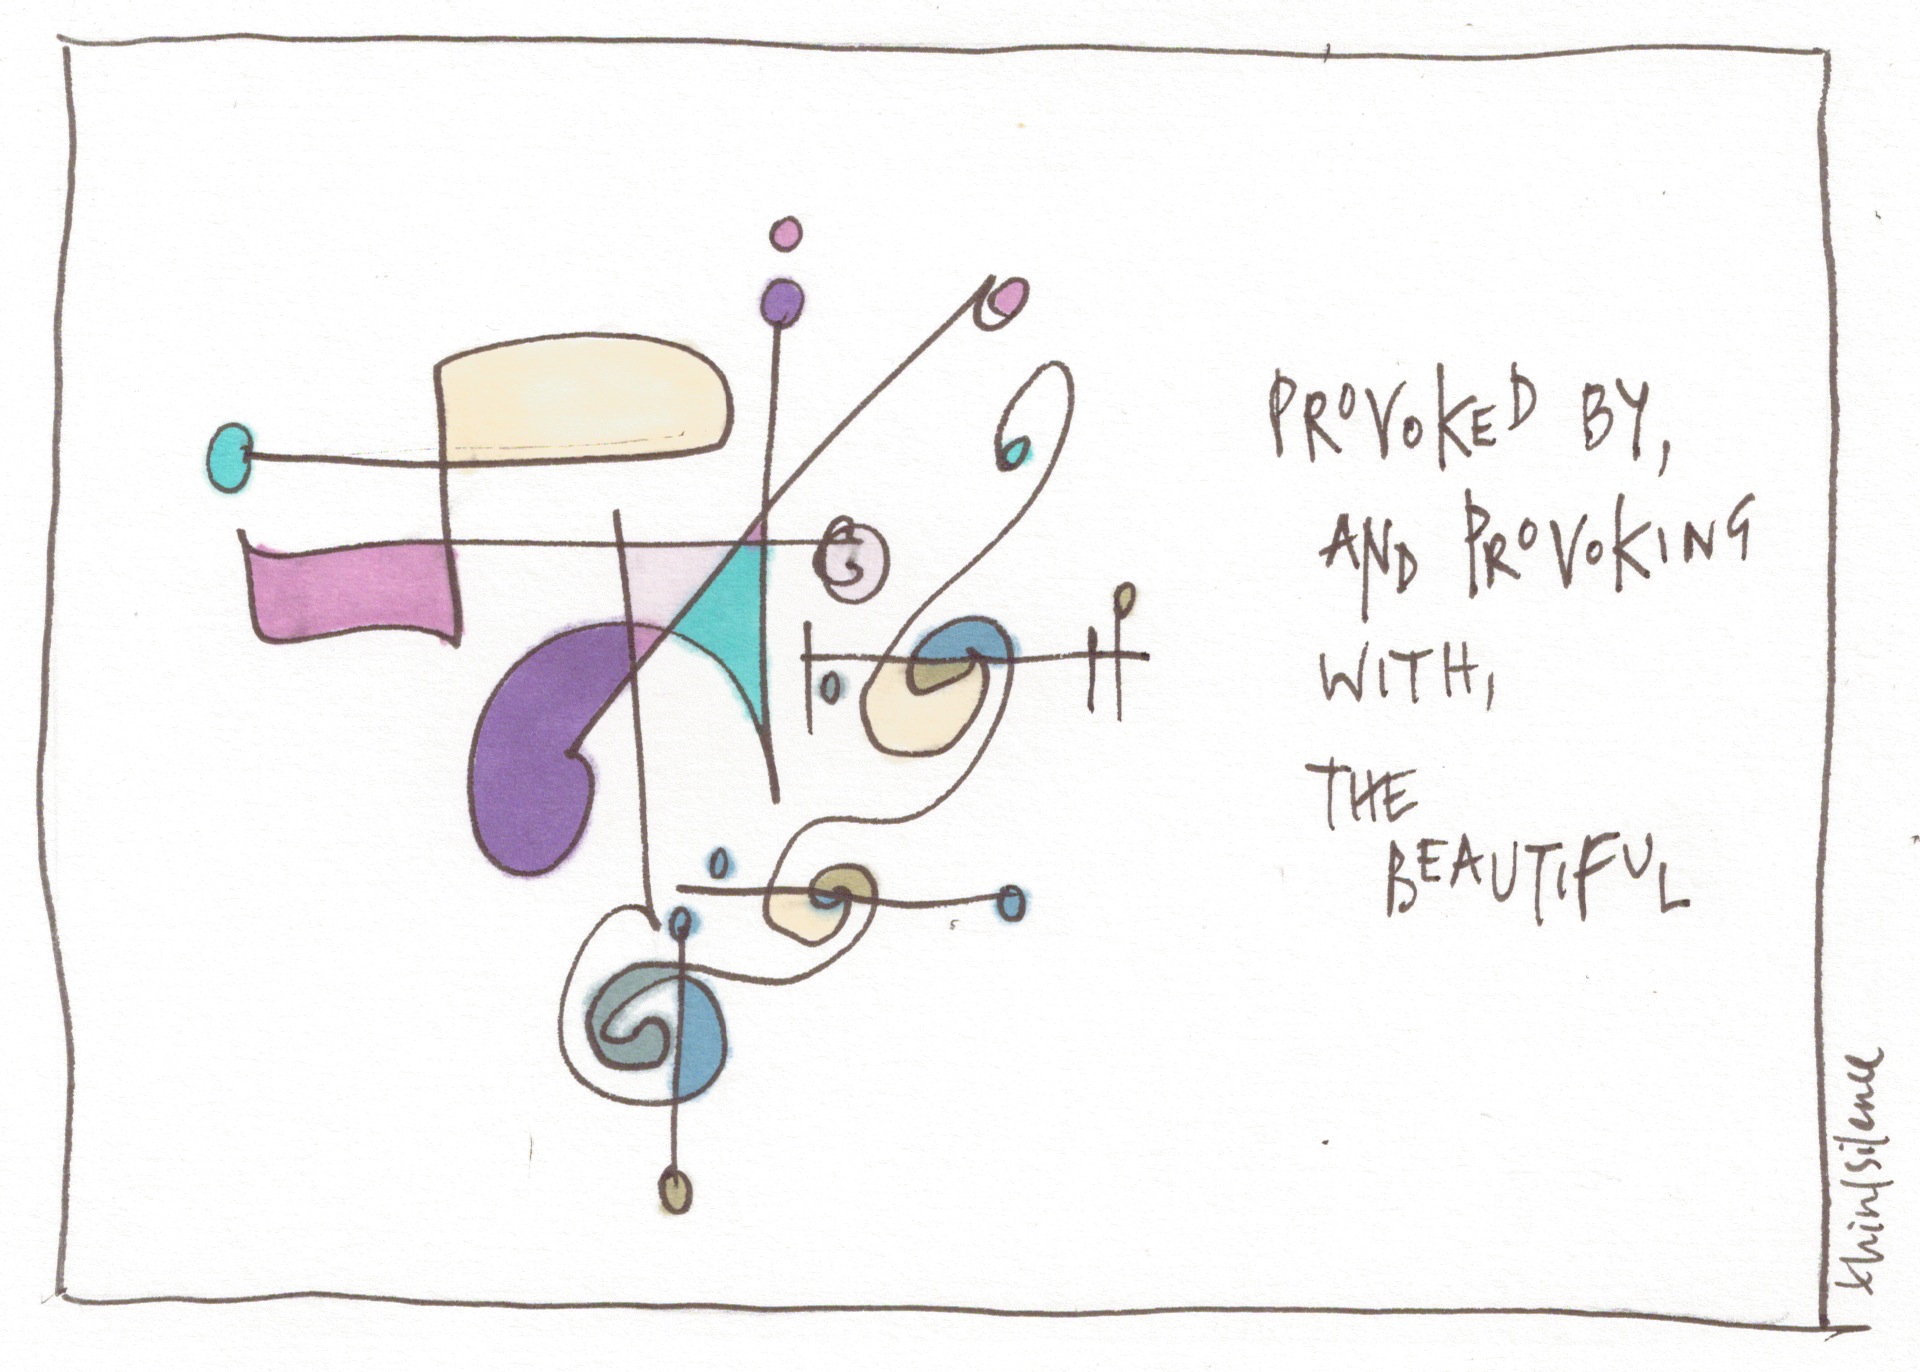 PROVOKED BY,
AND PROVOKING
WITH,
THE
BEAUTIFUL